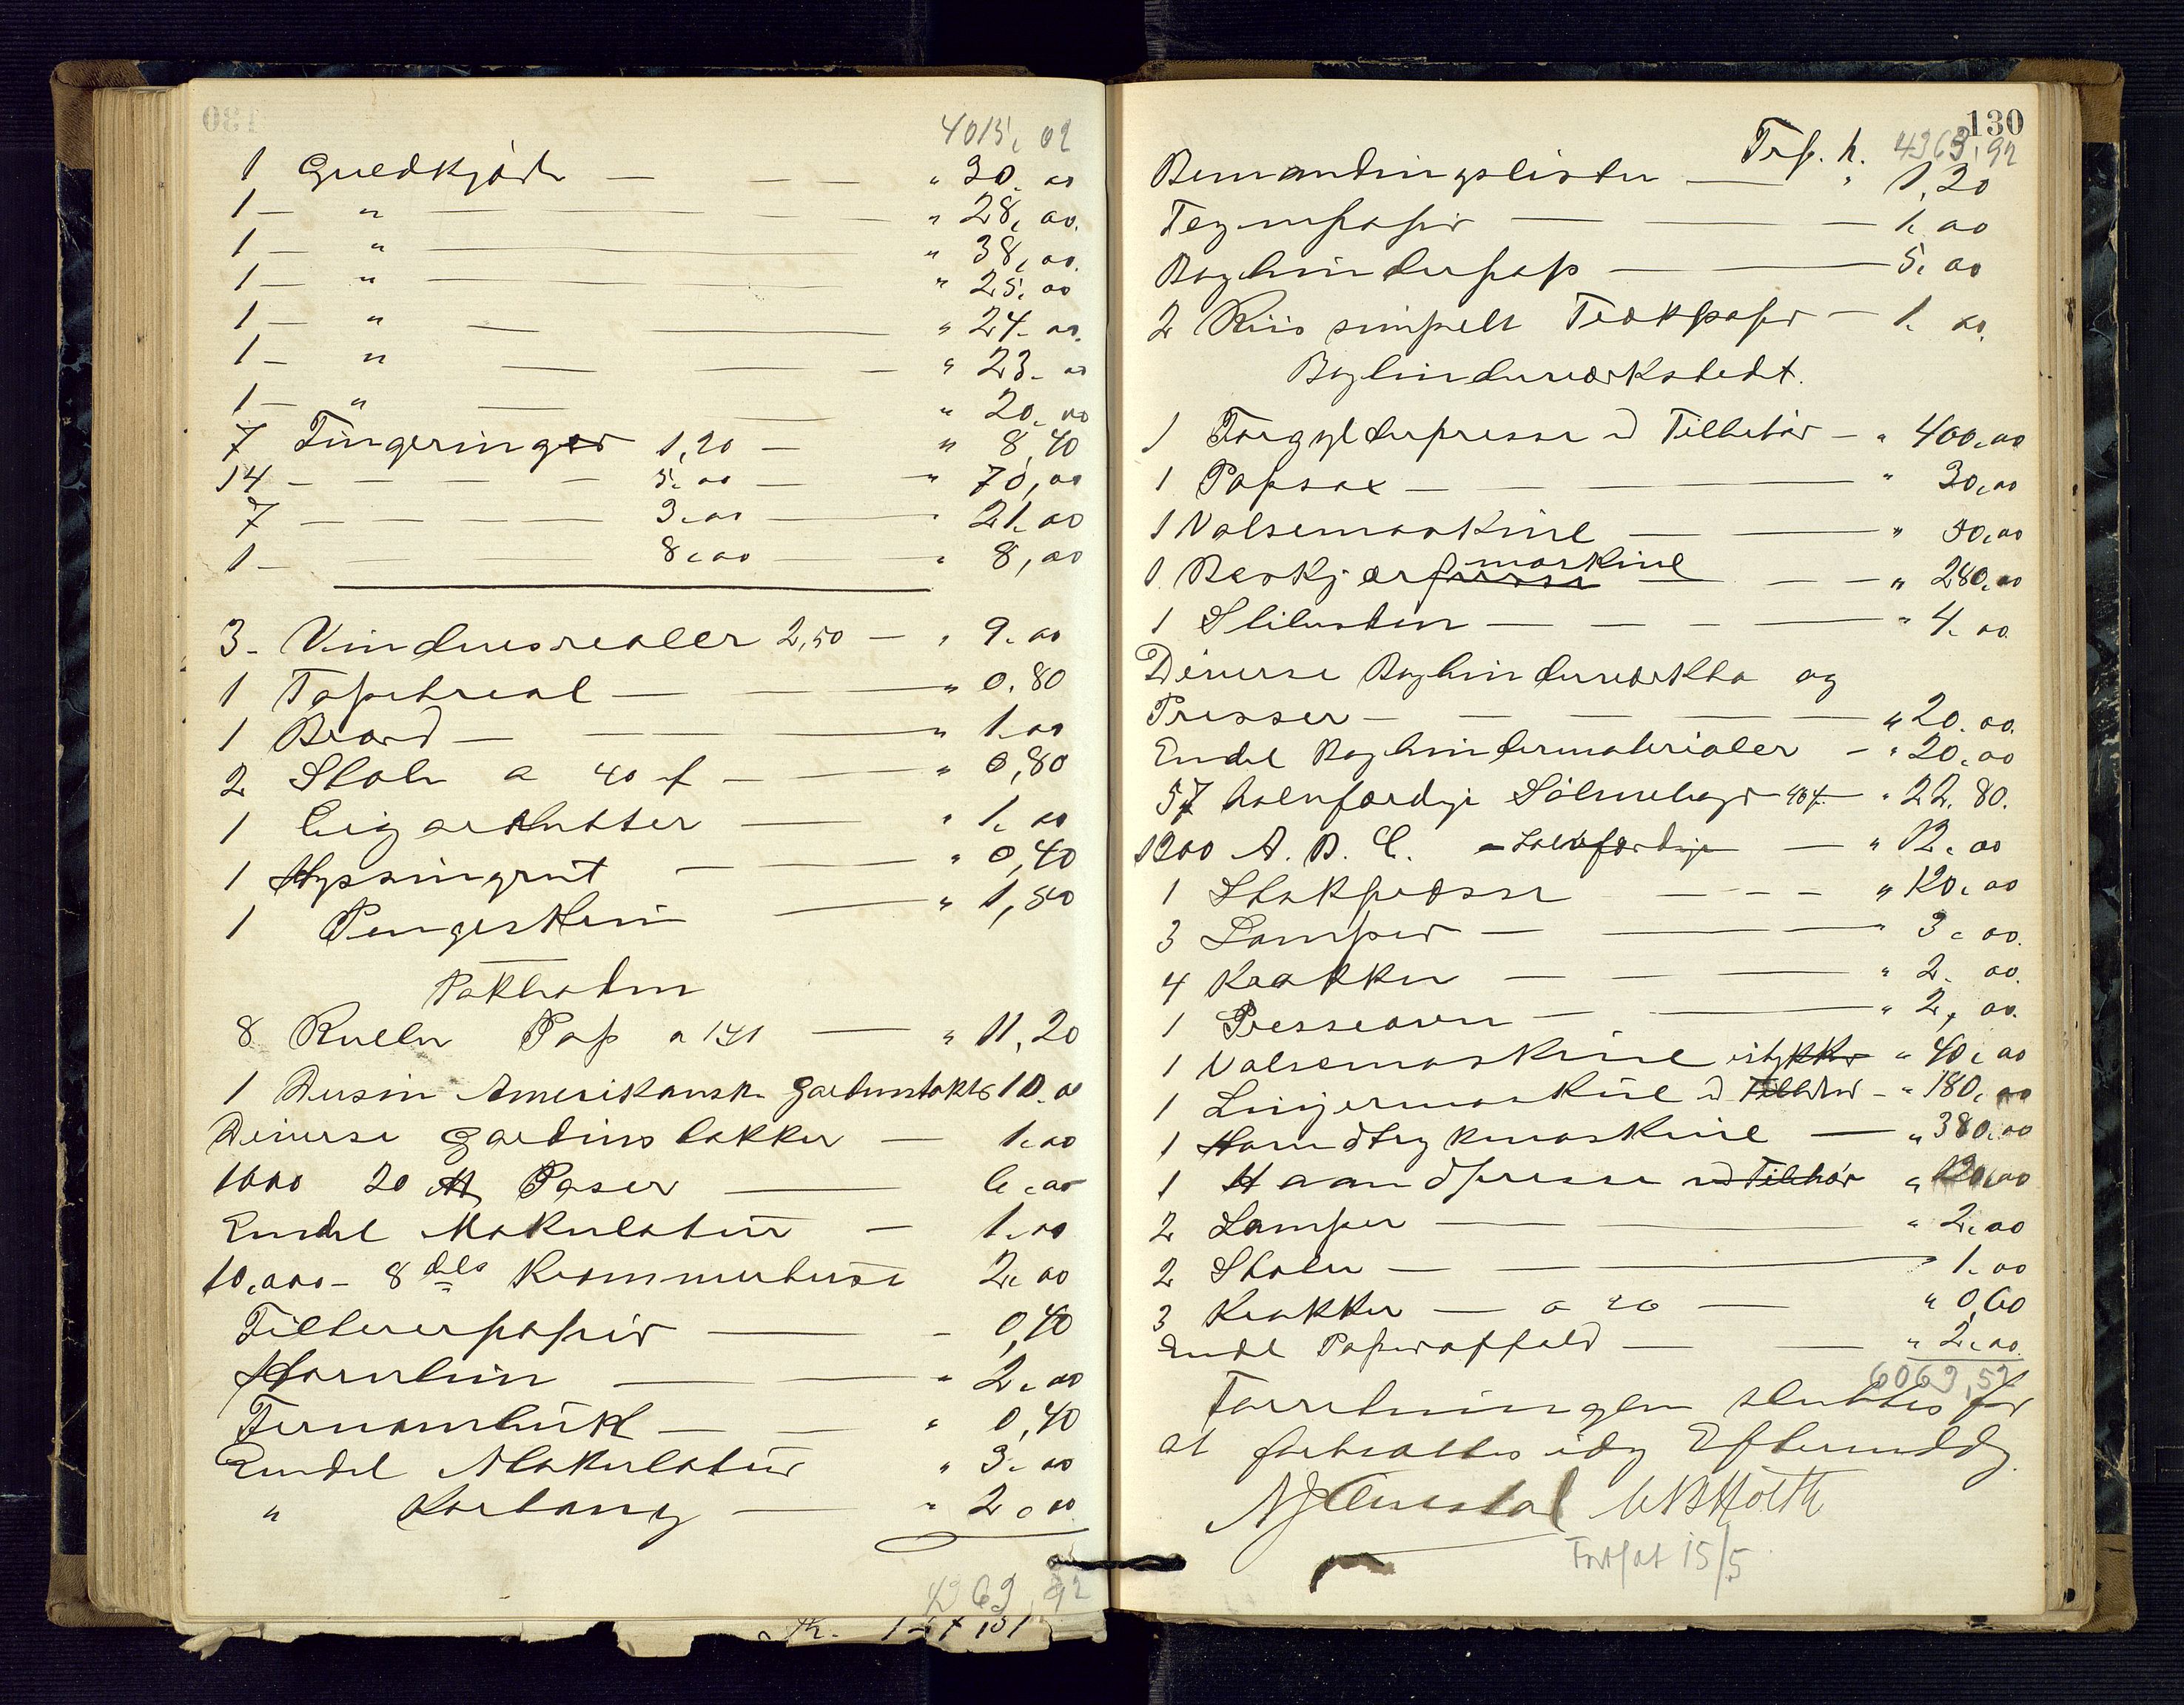 4015, 02
1 Guldkjæde — — — " 30. 00
1 — " — — " 28, 00.
1 — " — — " 38, 00.
1 — " — — " 25, 00
1 — " — — " 24. 00.
1 — " — — " 23. 00
1 — " — — " 20. 00
7 Fingeringer 1,20 — " 8,40
14 — — — 5. 00 — " 70, 00
7 — — — 3. 00 — " 21. 00
1 — — 8. 00 — " 8, 00
3 - Vinduesrealer — " 9. 00
1 Tapetreal — — " 0. 80
1 Bord — — " 1. 00
2 Stole a 40 — — " 0,80
1 Cigarkutter — " 1. 00
1 Hyssingrut — — " 0,40
1 Pengeskrin — " 1,50
Pakboden
8 Ruller Pap a 141 — " 11,20
1 Dusin Amerikansk Gardinstokke 10. 00
Diverse Gardinslakker — 1. 00
1000 20 Poser — 6. 00
Endel Makulatur — 1. 00
10.000 - 8 dels Kræmmerhuse 2. 00
Filtrerpapir — 0,40
Hornlim — — " 2. 00
Fernambuk — — " 0,40
Endel Makulatur " 3. 00
" — " 2. 00
4363, 92
130
Trsp. kr. 4363, 92
Bemandingslister — " 1,20
Tegnepapir — — 1. 00
Bogbinderpap — — 5. 00
2 Riis simpelt Trækpapir — 1. 00.
Bogbinderværkstedet.
1 Forgylderpresse m Tilbehör — " 400. 00
1 Papsax — — — " 30. 00
1 Valsemaskine — — " 50. 00
1 Beskjærmaskine — — " 280. 00
1 Slibesten — — — " 4. 00
Diverse Bogbinderværktø og
Presser — — — " 20. 00.
Endel Bogbindermaterialer — " 20. 00
57 halvfærdige Salmebøger 40 — " 22. 80.
1200 A. B. C. - halvfærdige — " 12. 00
1 Stokpresse — — — " 120. 00
3 Lamper — — " 3. 00.
4 Krakker — — — " 2. 00.
1 Presseovn — — " 2, 00.
1 Valsemaskine istykker " 40. 00
1 Linjermaskine m Tilbehør — " 180. 00
1 Haandtrykmaskine — " 380. 00
1 Haandpresse m Tilbehør " 120. 00
2 Lamper — — " 2. 00
2 Stoler — — " 1. 00
3 Krakker — a 20 — " 0,60
Endel Papiraffald — — " 2. 00.
6069, 52
Forretningen sluttes for
at fortsættes idag Eftermiddag.
Fortsat 15/5